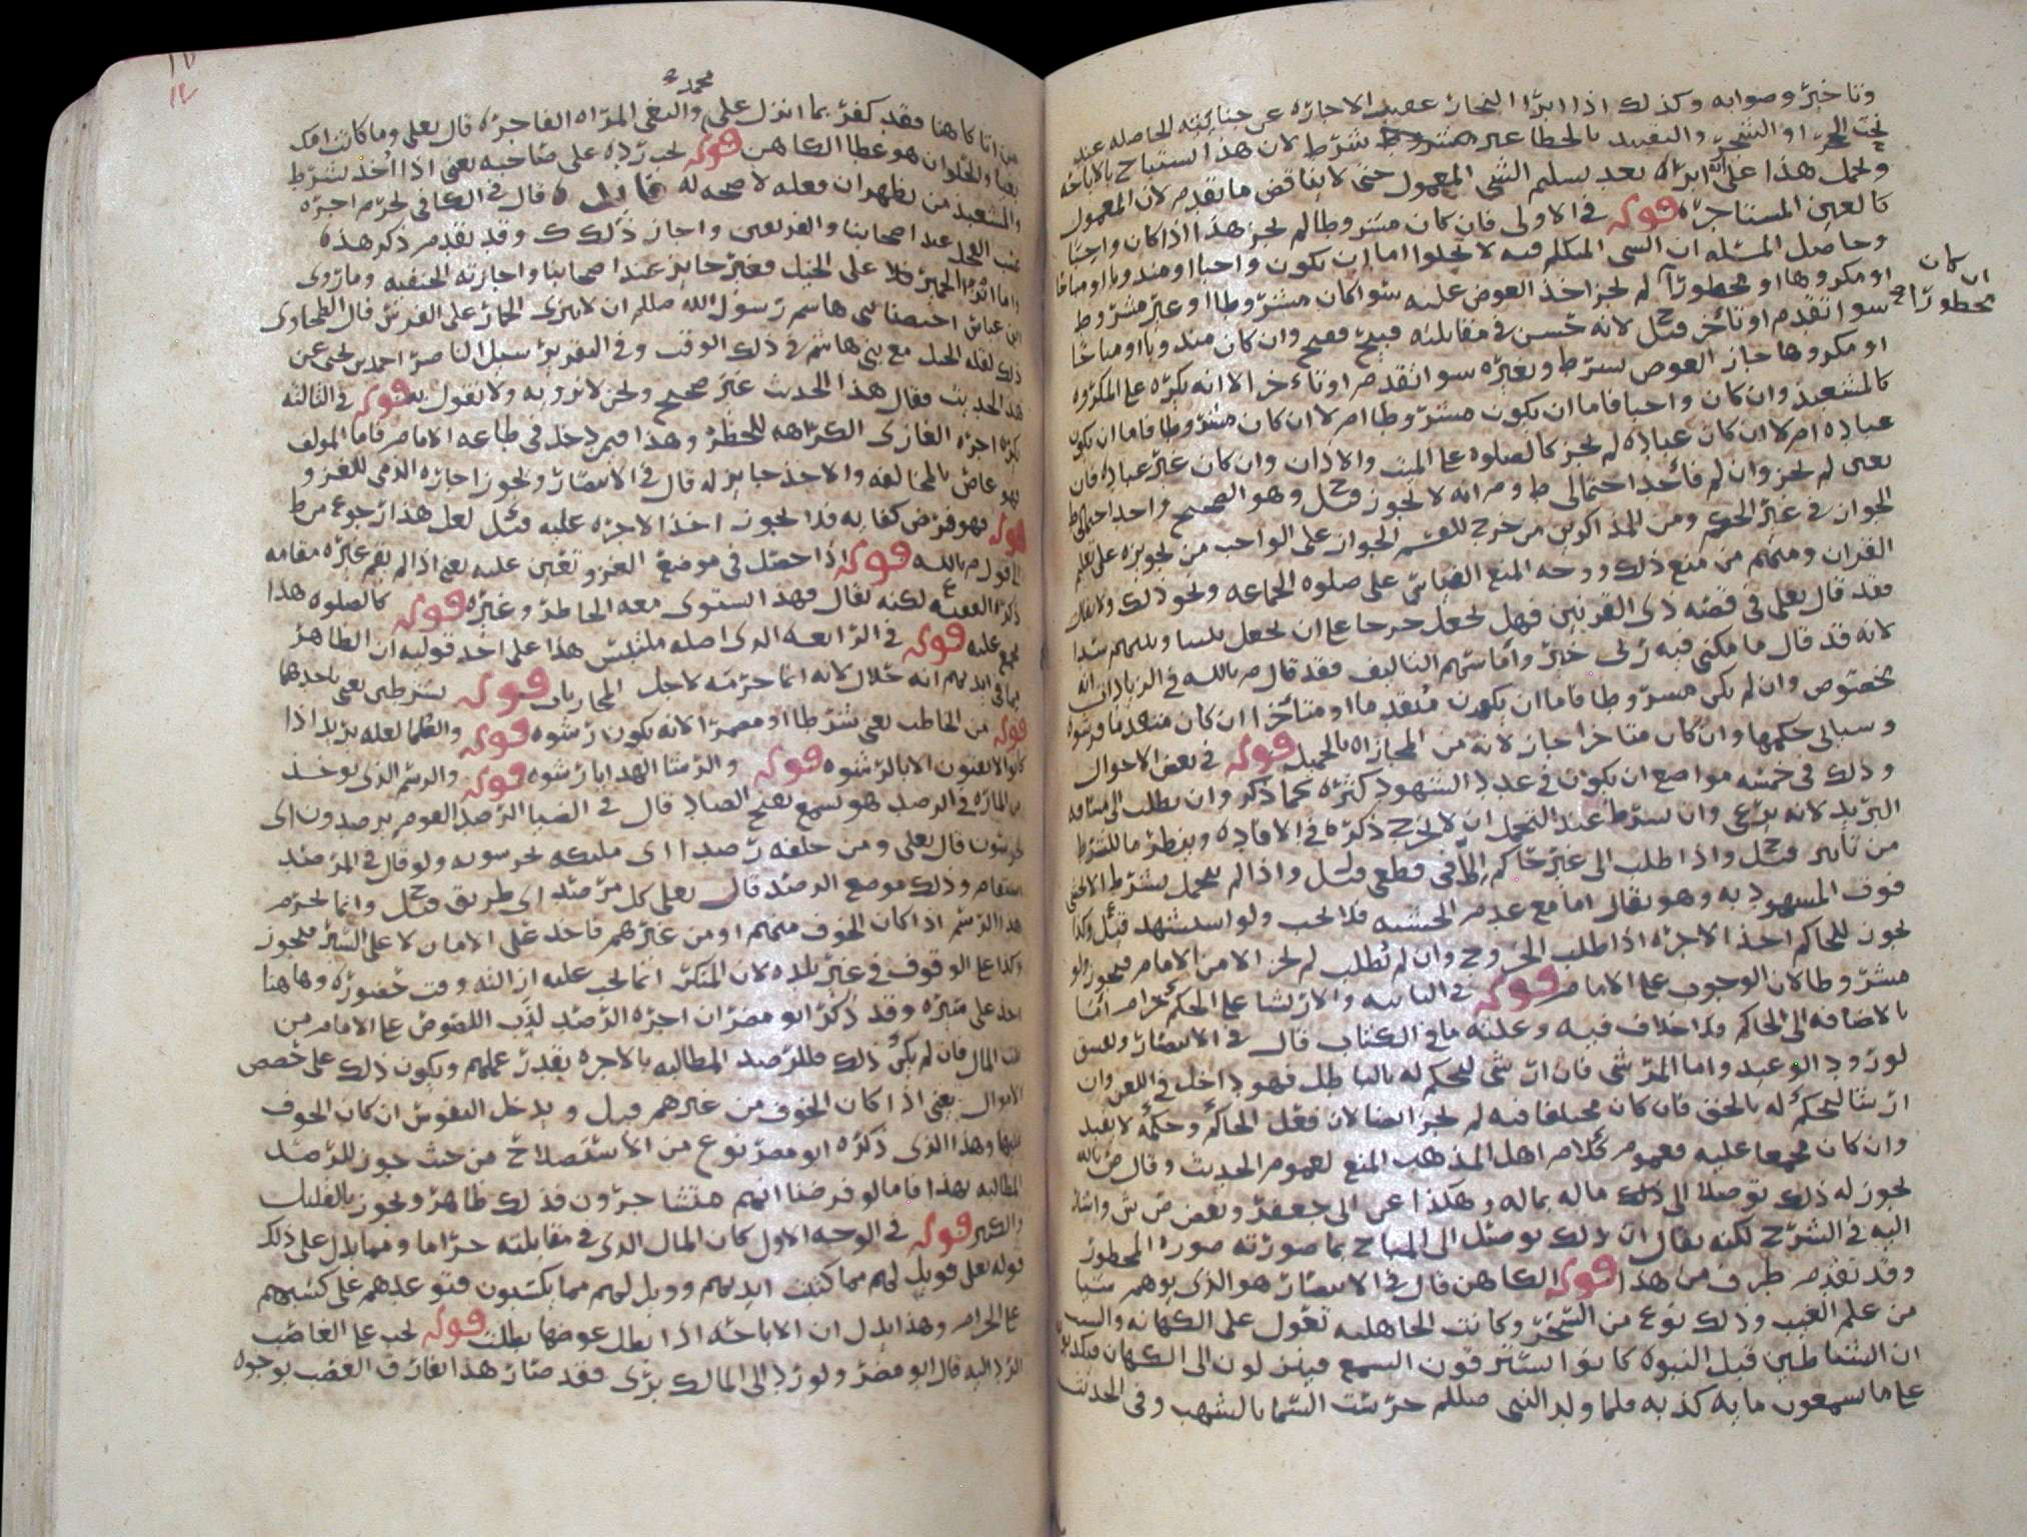 وتاخيره وصوابه وكذلك اذا ابرا النجار عقيب الاجاره عن جنايته الحاصله عند
نحت الحجر او الشجر والتقييد بالخطا غير مشروط شرط لان هذا استباح بالاباحه
ويحمل هذا على انه ابراه بعد تسليم الشي المعمول حتى لا يناقض ما تقدم لان المعمول
كالعين المستاجره قوله في الاولى فان كان مشروطا لم يجز هذا اذا كان واجبا
وحاصل المسئله ان الشي المتكلم فيه لا يخلوا اما ان يكون واجبا او مندوبا او مباحا
او مكروها او محظورا ان كان محظورا لم يجز اخذ العوض عليه سوا كان مشروطا او غير مشروط
سوا تقدم او تاخر قيل لانه حسن في مقابلته قبيح فقبح وان كان مندوبا او مباحا
او مكروها جاز العوض بشرط وبغيره سوا تقدم او تاخر الا انه يكره على المكروه
كالمشعبذ وان كان واجبا فاما ان يكون مشروطا ام لا ان كان مشروطا فاما ان يكون
عباده ام لا ان كان عباده لم يجز كالصلوه على الميت والاذان وان كان غير عباده فان
تعين لم يجز وان لم فاحد احتمالي ط و م انه لا يجوز وهو الصحيح واحد احتمالي ط
الجواز في غير الحكم ومن المذاكرين من خرج للقسم الجواز على الواجب من تجويزه على تعليم
القران ومنهم من منع ذلك ووجه المنع القياس على صلوه الجماعه ونحو ذلك ولا يقال
فقد قال تعلى في قصه ذي القرنين فهل نجعل لك خرجا على ان تجعل بيننا وبينهم سدا
لانه قد قال ما مكني فيه ربي خير واما سهم التاليف فقد قال م بالله في الزيادات انه
مخصوص وان لم يكن مشروطا فاما ان يكون متقدما او متاخرا ان كان متقدما فرشوه
وسياتي حكمها وان كان متاخرا جاز لانه من المجازاه بالجميل قوله في بعض الاحوال
وذلك في خمسه مواضع ان يكون في عدد الشهود كثره كما ذكر وان يطلب الى مسافه
البريد لانه بدعي وان شرط عند التحمل ان لا يخرج ذكره في الافاده وينظر ما للشرط
من تاثير قيل واذا طلب الى غير حاكم
فوق المشهود به وهو يقال اما مع عدم الحسبه فلا يجب ولو استشهد
يجوز للحاكم اخذ الاجره اذا طلب الخروج وان لم يطلب لم يجز الا من الامام فيجوز ولو
مشروطا لان الوجوب على الامام قوله في الثانيه والارتشا على الحكم حرام اما
بالاضافه الى الحاكم فلا خلاف فيه وعليه ما في الكتاب قال في الانتصار ويفسق
لورود الوعيد واما المرتشي فان ارتشى ليحكم له بالباطل فهو داخل في اللعن وان
ارتشا ليحكم له بالحق فان كان مختلفا فيه لم يجز ايضا لان فعل الحاكم وحكمه لا يفيد
وان كان مجمعا عليه فعموم كلام اهل المذهب المنع لعموم الحديث وقال ض بالله
يجوز له ذلك توصلا الى ذلك ماله بماله وهكذا عن ابي جعفر وبعض ص ش واشار
اليه في الشرح لكنه يقال ان ذلك توصل الى المباح بما صورته صوره المحظور
وقد تقدم طرف من هذا قوله الكاهن قال في الانتصار هو الذي يوهم شيا
من علم الغيب وذلك نوع من السحر وكانت الجاهليه تعول على الكهانه والسبب
ان الشياطين قبل النبوه كانوا يسترقون السمع فينزلون الى الكهان
على ما يسمعون مايه كذبه فلما ولد النبي صللم حرست السما بالشهب وفي الحديث
من اتا كاهنا فقد كفر بما انزل على محمد والبغي المراه الفاجره قال تعلى وما كانت امك
بغيا والحلوان هو عطا الكاهن قوله يجب رده على صاحبه يعني اذا اخذ بشرط
والمشعبذ من يظهر ان فعله لا صحه له قال في الكافي يحرم اجره
عسب الفحل عند اصحابنا والفريقين واجاز ذلك ك وقد تقدم ذكر هذه
واما انزا الحمير على الخيل فغير جايز عند اصحابنا واجازته الحنفيه وما روى
ابن عباس اختصنا بني هاشم رسول الله صللم ان لا ننزى الحمار على الفرس قال الطحاوي
ذلك لقله الخيل مع بني هاشم في ذلك الوقت وفي التقرير سيل الناصر احمد بن يحيى عن
هذا الحديث فقال هذا الحديث غير صحيح ونحن لا نرويه ولا نقول به قوله في الثالثه
يكره اجره الغازي الكراهه للحظر وهذا فيمن دخل في طاعه الامام فاما المولف
فهو عاص بالمخالفه والاخذ جايز له قال في الانتصار ويجوز اجاره الذمي للغزو
قوله فهو فرض كفايه فلا يجوز اخذ الاجره عليه قيل لعل هذا رجوع من ط
الى قول م بالله قوله اذا حصل في موضع الغزو تعين عليه يعني اذا لم يقم غيره مقامه
ذكره الفقيه ع لكنه يقال فهذا يستوي معه الحاضر وغيره قوله كالصلوه هذا
مجمع عليه قوله في الرابعه الذي اصله ملتبس هذا على احد قوليه ان الظاهر
فيما في ايديهم انه حلال لانه انما حرمه لاجل المحاربات قوله بشرطين يعني باحدهما
قوله من الخاطب يعني شرطا او مضمرا لانه يكون رشوه قوله والعلما لعله يريد اذا
كانوا لا يفتون الا بالرشوه قوله والرشا الهدايا رشوه قوله والرسم الذي يوخذ
من الماره في الرصد هو يسمع بفتح الصاد قال في الضيا الرصد القوم يرصدون اي
يحرسون قال تعلى ومن خلفه رصدا اي مليكه يحرسونه ولو قال في المرصد
استقام وذلك موضع الرصد قال تعلى كل مرصد اي طريق قيل وانما يحرم
هذا الرسم اذا كان الخوف منهم او من غيرهم فاخذ على الامان لا على السير فيجوز
وكذا على الوقوف في غير بلده لان المنكر انما يجب عليه ازالته وقت حضوره وهاهنا
اخذ على مسيره وقد ذكر ابو مضر ان اجره الرصد لذب اللصوص على الامام من
بيت المال فان لم يكن ذلك فللرصد المطالبه بالاجره بقدر عملهم ويكون ذلك على حصص
الاموال يعني اذا كان الخوف من غيرهم قيل ويدخل النفوس ان كان الخوف
عليها وهذا الذي ذكره ابو مضر نوع من الاستصلاح من حيث جوز للرصد
المطالبه بهذا فاما لو فرضنا انهم مستاجرون فذلك ظاهر ويجوز بالقليل
والكثير قوله في الوجه الاول كان المال الذي في مقابلته حراما ومما يدل على ذلك
قوله تعلى فويل لهم مما كتبت ايديهم وويل لهم مما يكسبون فتوعدهم على كسبهم
على الحرام وهذا يدل ان الاباحه اذا بطل عوضها بطلت قوله يجب على الغاصب
الرد اليه قال ابو مضر ولو رد الى المالك بري فقد صار هذا الفارق الغصب بوجوه